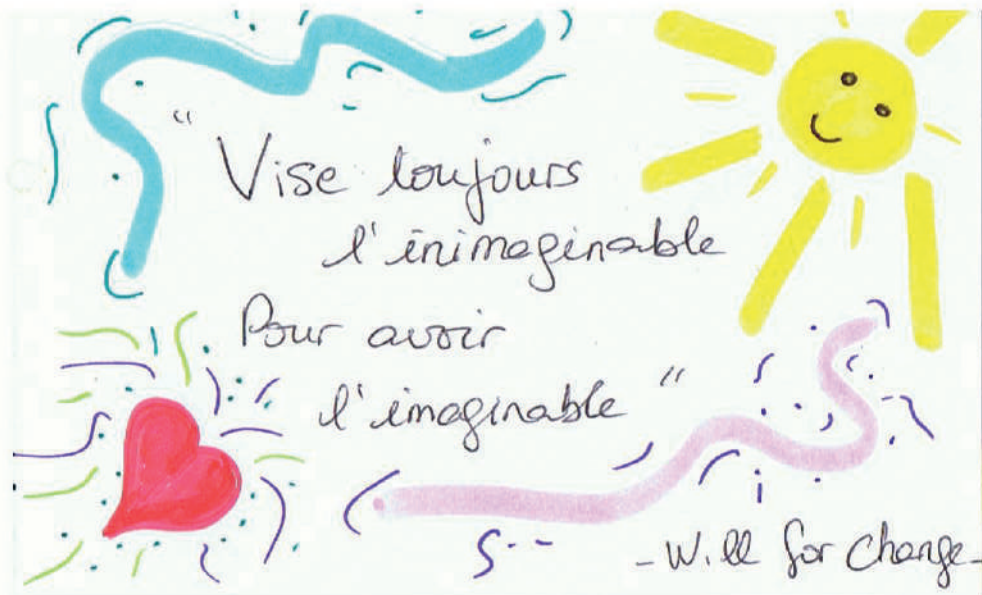 " Vise toujours
l'inimaginable
Pour avoir
l'imaginable "
- Will for Change -